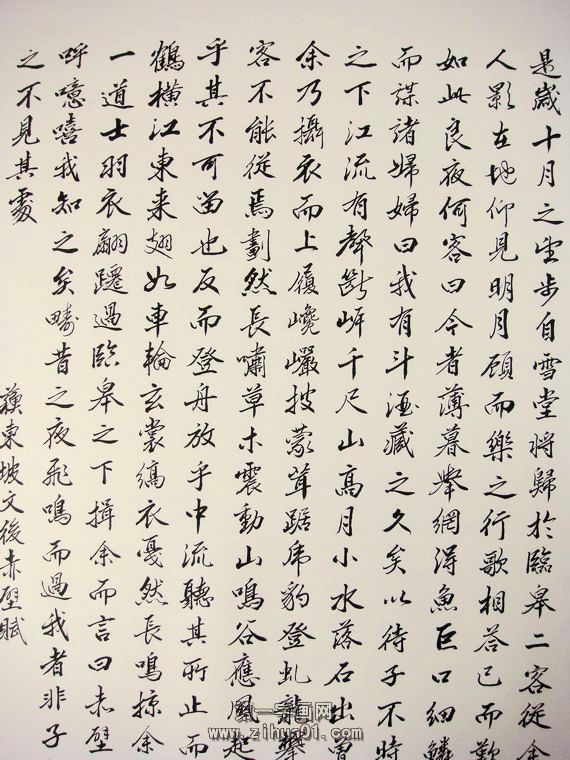 是歲十月之望步自雪堂將歸於臨皋二客從余
人影在地仰見明月顧而樂之行歌相答已而歎
如此良夜何客曰今者薄暮舉網得魚巨口細鱗
而謀諸婦婦曰我有斗酒藏之久矣以待子不時
之下江流有聲斷岸千尺山高月小水落石出曾
余乃攝衣而上履巉巖披蒙茸踞虎豹登虬龍攀
客不能從焉劃然長嘯草木震動山鳴谷應風起
乎其不可留也反而登舟放乎中流聽其所止而
鶴橫江東来翅如車輪玄裳縞衣戛然長鳴掠余
一道士羽衣翩躚過臨皋之下揖余而言曰赤壁
呼噫嘻我知之矣疇昔之夜飛鳴而過我者非子
之不見其處
蘇東坡文後赤壁賦
第一字画网
www.zihua01.com